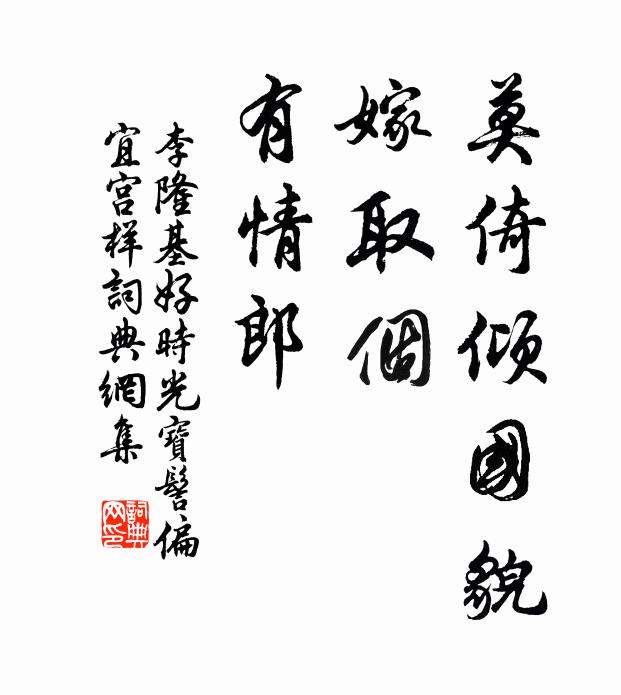 莫倚傾國貌
嫁取個
有情郎
李隆基好時光寶髻偏
宜宮样詞典網集
詞典
网印